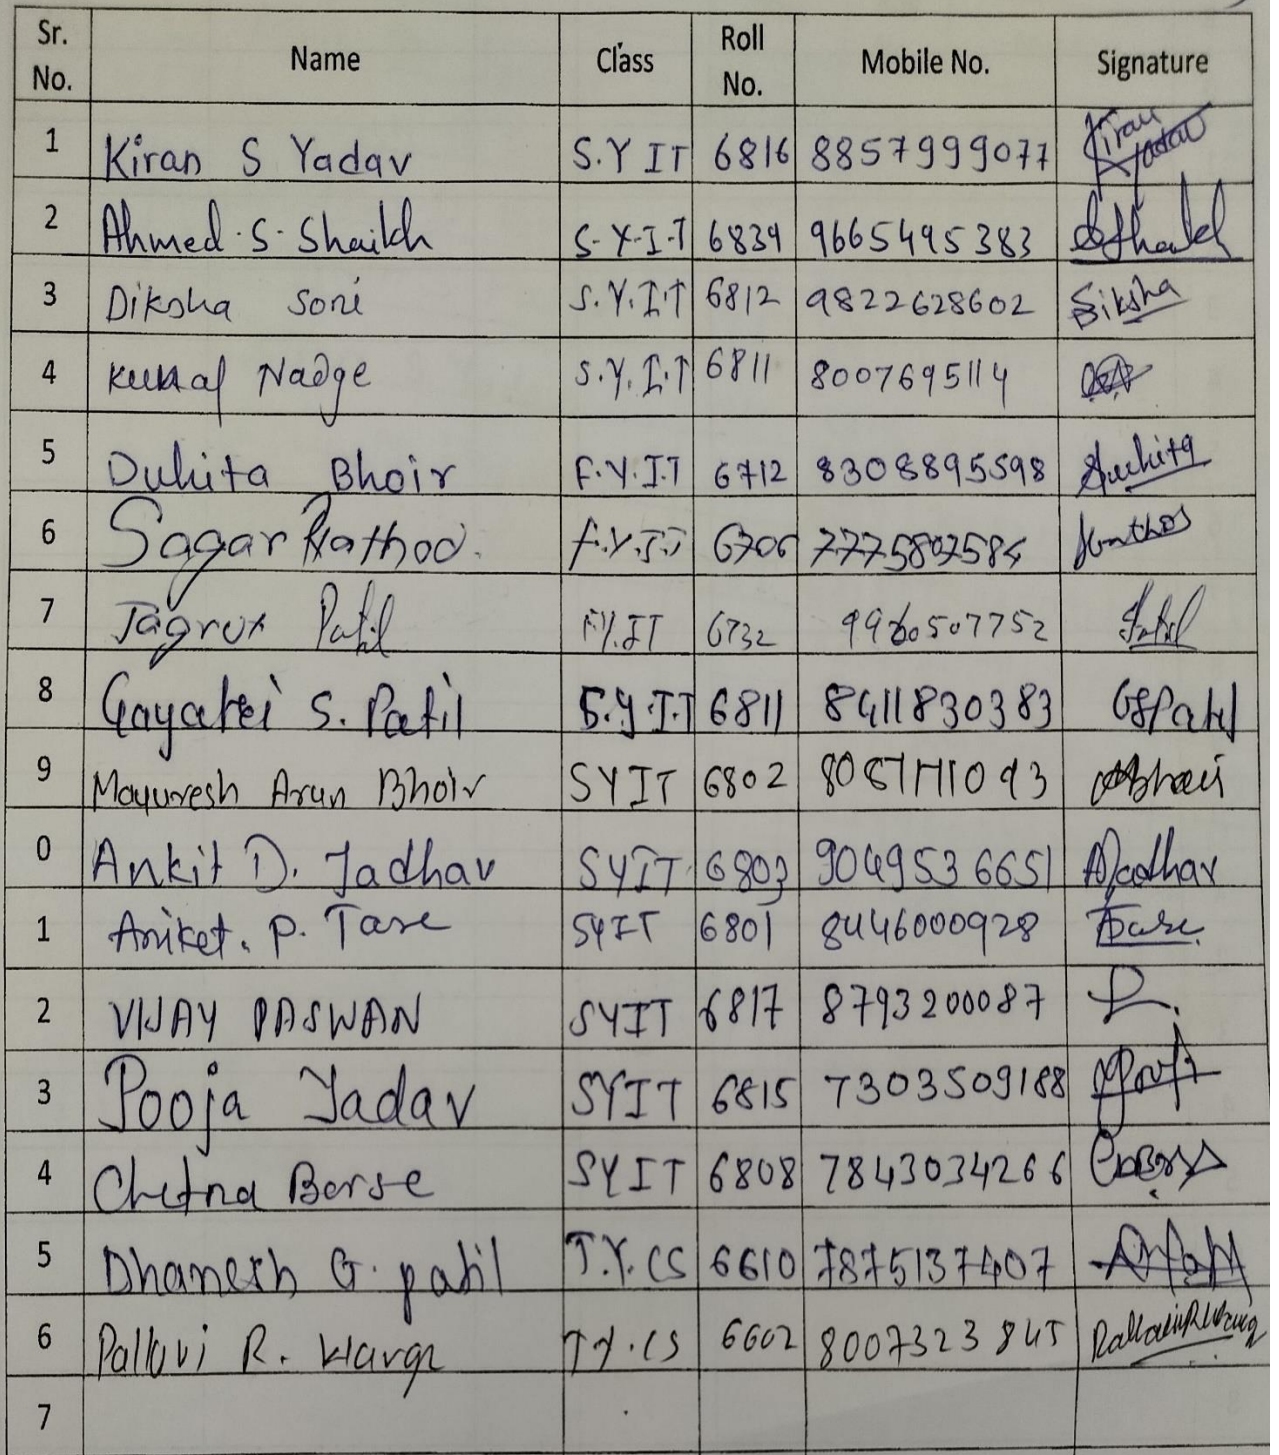 Sr. No. Name Class Roll No. Mobile No. Signature
1 Kiran S Yadav S.Y IT 6816 8857999077 Kiran Yadav
2 Ahmed.S.Shaikh S.Y.I.T 6834 9665495383
3 Diksha Soni S.Y.I.T 6812 9822628602 Diksha
4 Kunal Nadge S.Y.I.T 6811 8007695114
5 Duhita Bhoir F.Y.I.T 6712 8308895598 Duhita
6 Sagar Rathod. F.Y.I.T 6706 7775807584 Rathod
7 Jagrut Patil F.Y.IT 6732 9960507752 Patil
8 Gayatri S. Patil S.Y.I.T 6811 8411830383 GSPatil
9 Mayuresh Arun Bhoir SYIT 6802
0 Ankit D. Jadhav SYIT 6803 9049536651 ADJadhav
1 Aniket. P. Tare SYIT 6801 8446000928 Tare
2 VIJAY PASWAN SYIT 6817 8793200087
3 Pooja Yadav SYIT 6815 7303509188
4 Chetna Borse SYIT 6808 7843034266
5 Dhanesh G. patil T.Y.CS 6610 7875137407
6 Pallavi R. T.Y.CS 6602 8007323845
7